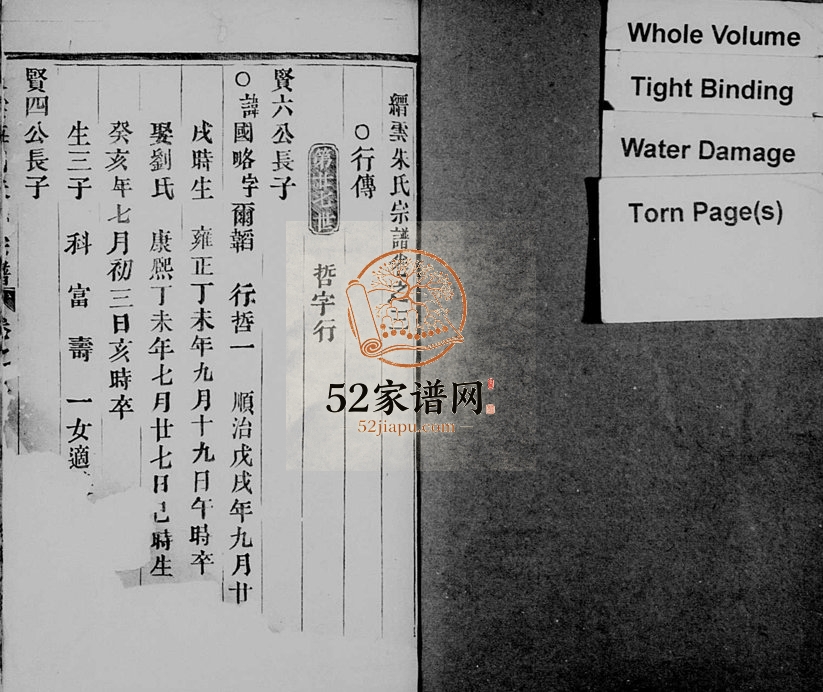 縉雲朱氏宗譜卷之
○行傳
第廿七世 哲字行
賢六公長子
○諱國略字爾韜 行哲一 順治戊戌年九月廿
戌時生 雍正丁未年九月十九日午時卒
娶劉氏 康熙丁未年七月廿七日巳時生
癸亥年七月初三日亥時卒
生三子 科 富 壽 一女適
賢四公長子
Whole Volume
Tight Binding
Water Damage
Torn Page(s)
52家谱网
52jiapu.com